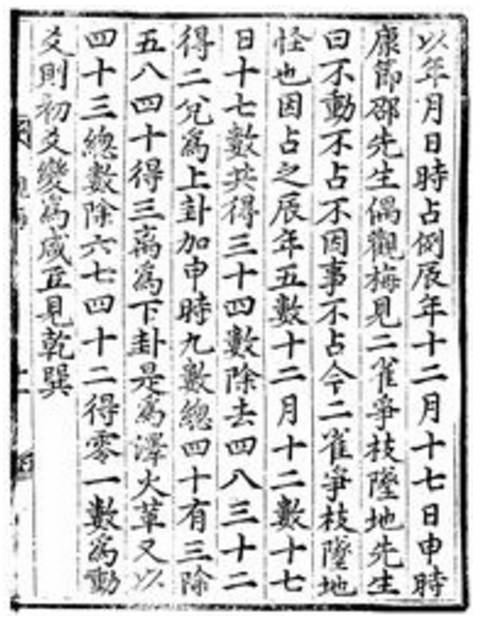 以年月日時占例辰年十二月十七日申時
康節邵先生偶觀梅見二雀爭枝墜地先生
曰不動不占不因事不占今二雀爭枝墜地
怪也因占之辰年五數十二月十二數十七
日十七數共得三十四數除去四八三十二
得二兌爲上卦加申時九數總四十有三除
五八四十得三離爲下卦是爲澤火革又以
四十三總數除六七四十二得零一數爲動
爻則初爻變爲咸互見乾巽